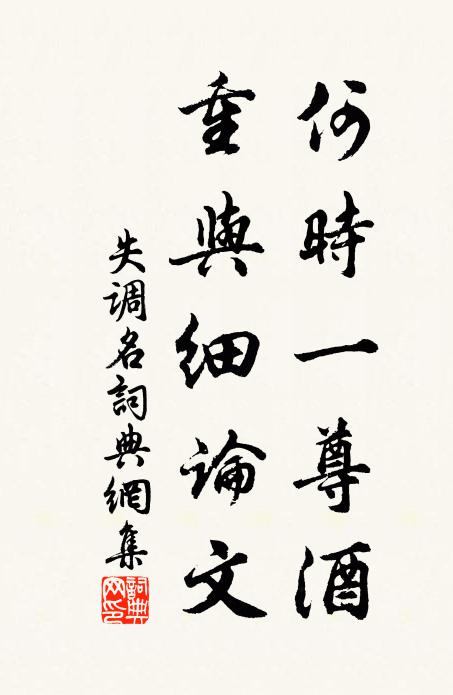 何時一尊酒
重與細論文
失調名詞典網集
詞典網印